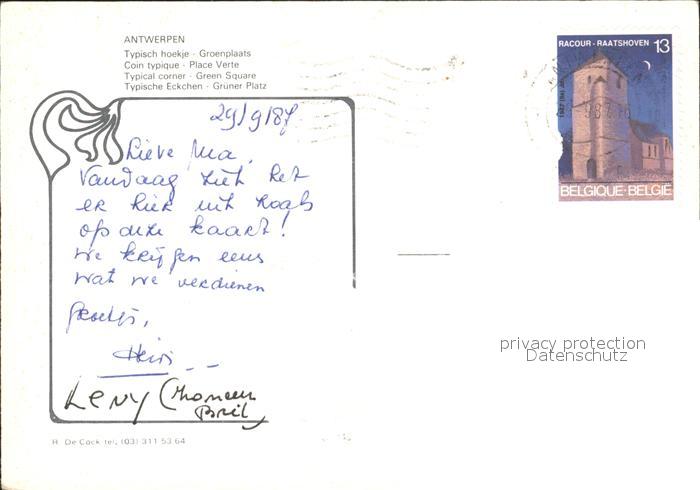 ANTWERPEN
Typisch hoekje - Groenplaats
Coin typique - Place Verte
Typical corner - Green Square
Typische Eckchen - Grüner Platz
RACOUR - RAATSHOVEN 13
BELGIQUE-BELGIË
29/9/87
Lieve Ma,
Vandaag ziet het
er hier uit zoals
op deze kaart!
We krijgen eens
wat we verdienen
Groetjes,
LENY
privacy protection
Datenschutz
R. De Cock tel. (03) 311 53 64